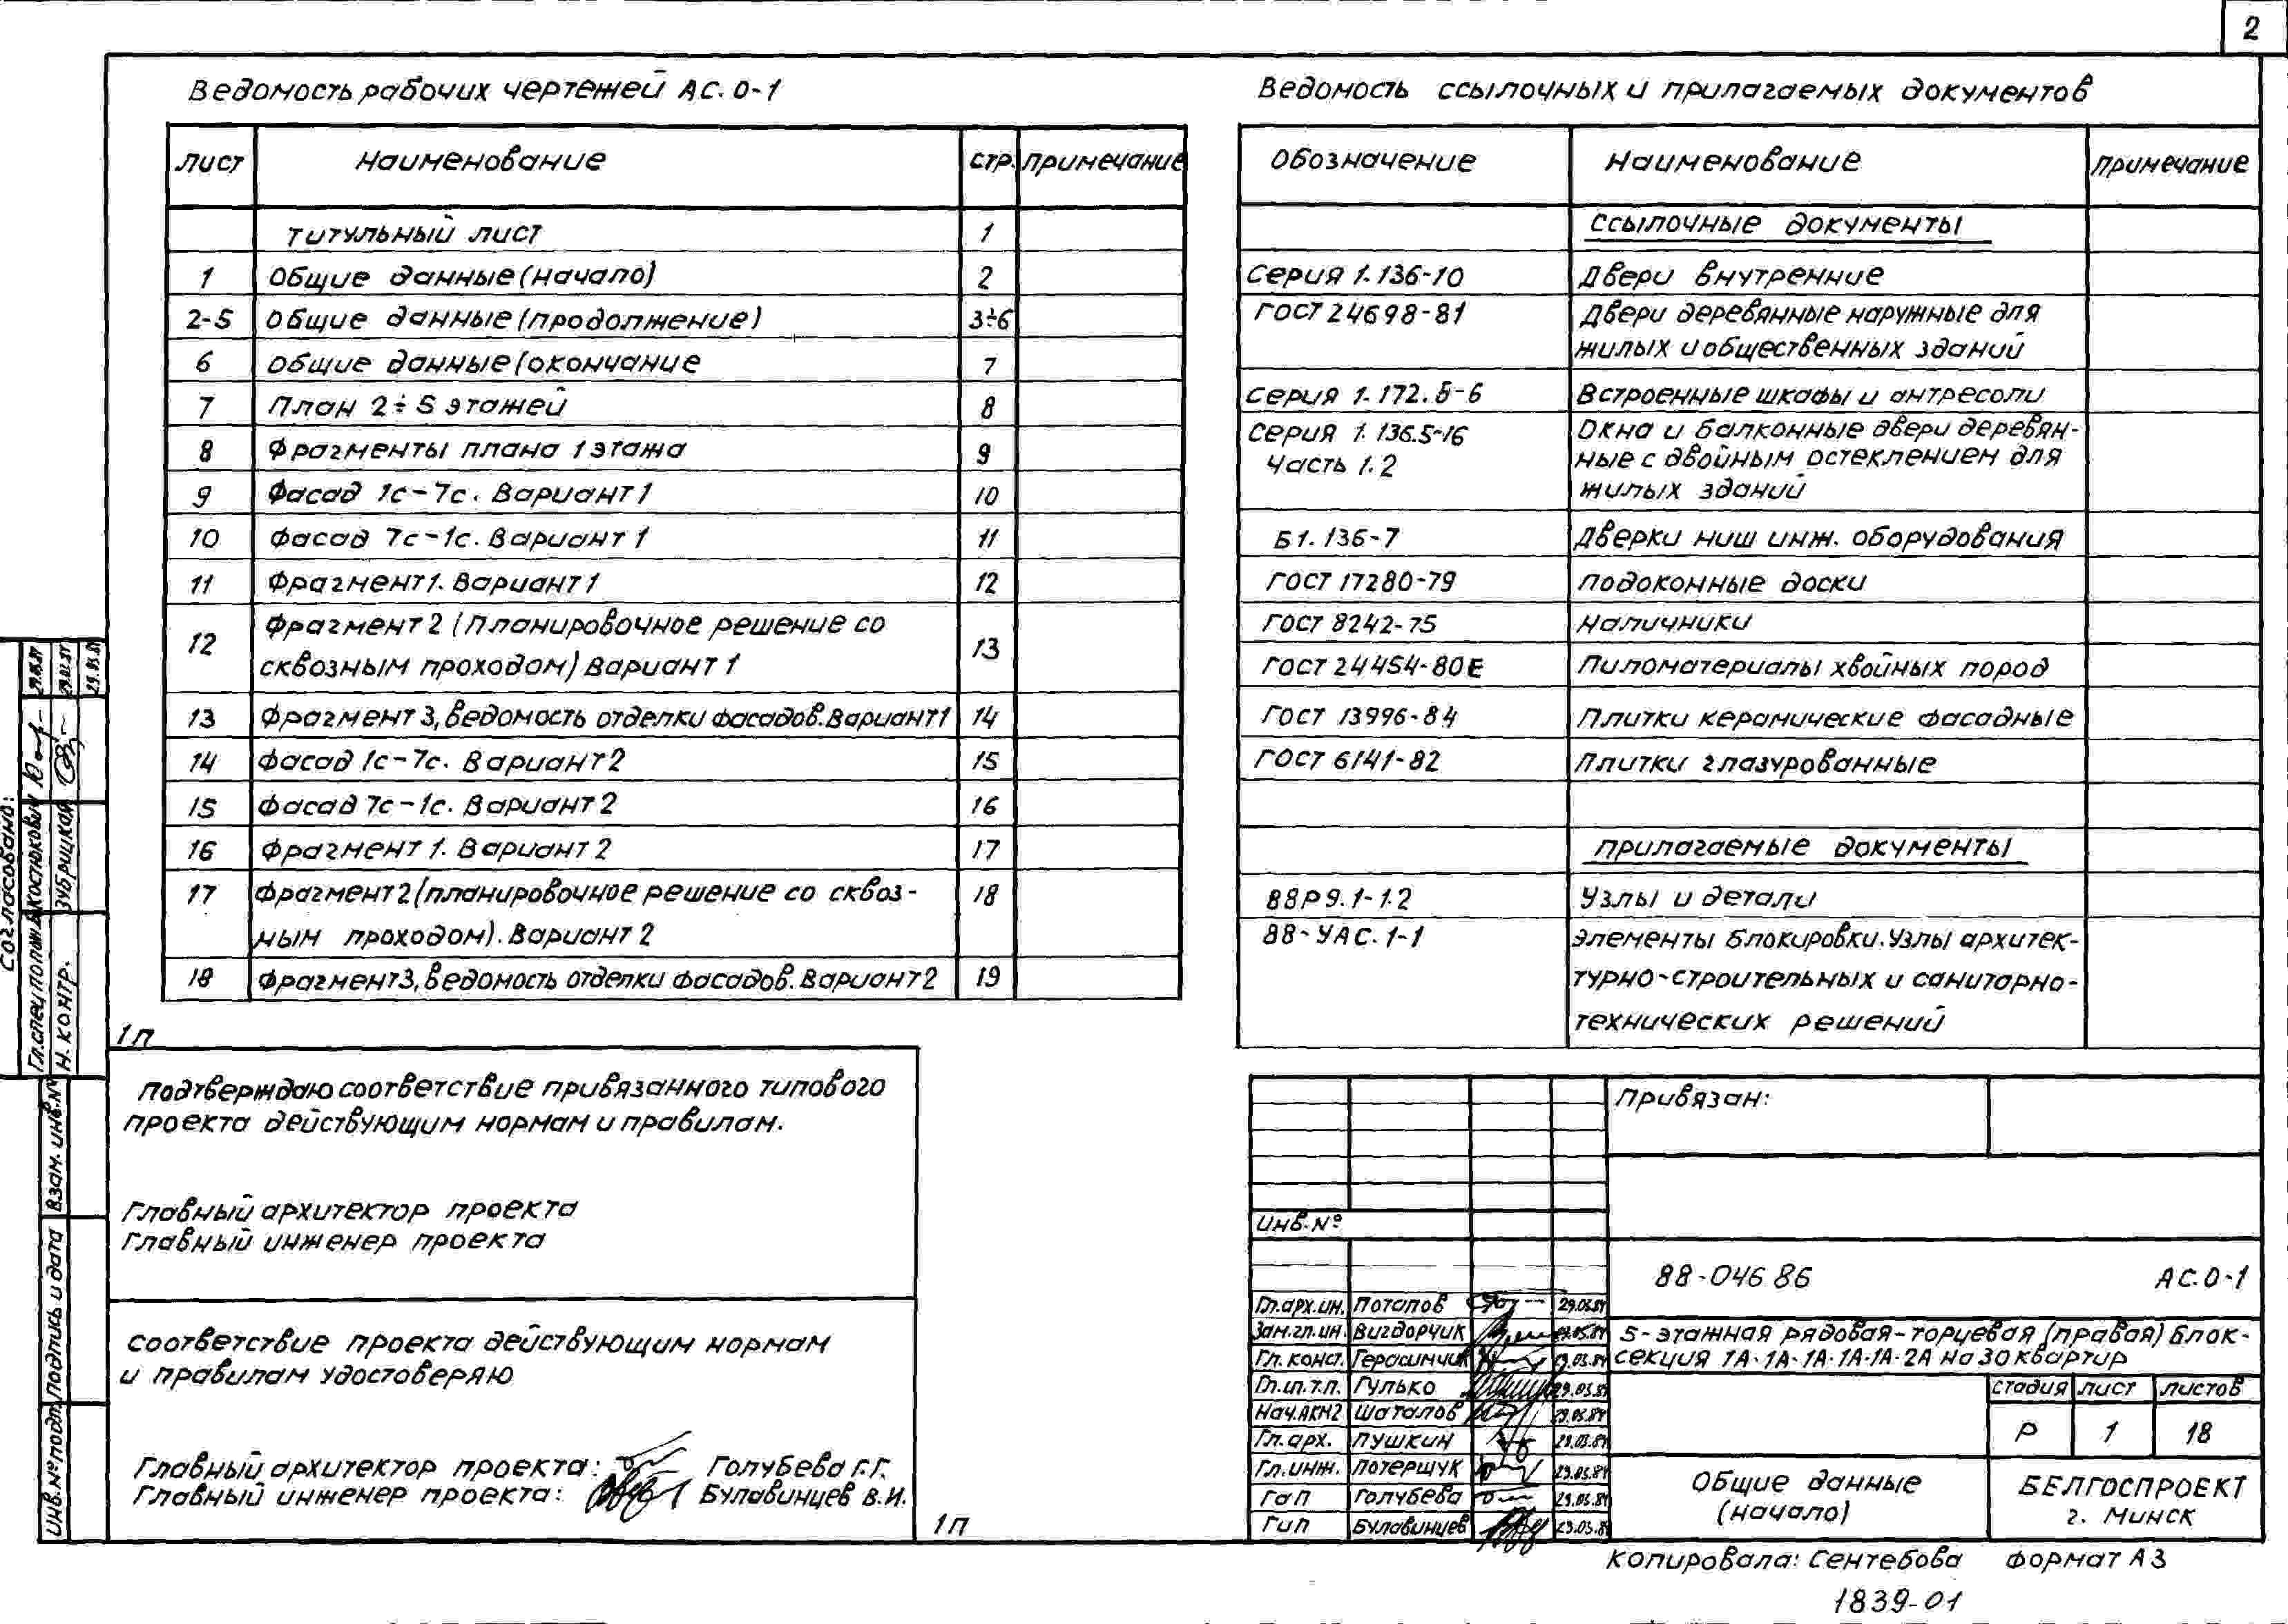 2
Ведомость рабочих чертежей АС. 0-1
Лист Наименование Стр. Примечание
Титульный лист 1
1 Общие данные (начало) 2
2-5 Общие данные (продолжение) 3÷6
6 Общие данные (окончание 7
7 План 2÷5 этажей 8
8 Фрагменты плана 1 этажа 9
9 Фасад 1с-7с. Вариант 1 10
10 Фасад 7с-1с. Вариант 1 11
11 Фрагмент 1. Вариант 1 12
12 Фрагмент 2 (планировочное решение со
сквозным проходом) Вариант 1 13
13 Фрагмент 3, ведомость отделки фасадов. Вариант 1 14
14 Фасад 1с-7с. Вариант 2 15
15 Фасад 7с-1с. Вариант 2 16
16 Фрагмент 1. Вариант 2 17
17 Фрагмент 2 (планировочное решение со сквоз- 18
ным проходом). Вариант 2
18 Фрагмент 3, ведомость отделки фасадов. Вариант 2 19
Ведомость ссылочных и прилагаемых документов
Обозначение Наименование Примечание
Ссылочные документы
Серия 1.136-10 Двери внутренние
ГОСТ 24698-81 Двери деревянные наружные для
жилых и общественных зданий
Серия 1.172.5-6 Встроенные шкафы и антресоли
Серия 1.136.5-16 Окна и балконные двери деревян-
Часть 1.2 ные с двойным остеклением для
жилых зданий
Б1.136-7 Дверки ниш инж. оборудования
ГОСТ 17280-79 Подоконные доски
ГОСТ 8242-75 Наличники
ГОСТ 24454-80Е Пиломатериалы хвойных пород
ГОСТ 13996-84 Плитки керамические фасадные
ГОСТ 6141-82 Плитки глазурованные
Прилагаемые документы
88Р9.1-1.2 Узлы и детали
88-УАС.1-1 Элементы блокировки. Узлы архитек-
турно-строительных и санитарно-
технических решений
1п
Подтверждаю соответствие привязанного типового
проекта действующим нормам и правилам.
Главный архитектор проекта
Главный инженер проекта
Соответствие проекта действующим нормам
и правилам удостоверяю
Главный архитектор проекта: Голубева Г.Г.
Главный инженер проекта: Булавинцев В.И.
1п
Согласовано:
Н. контр. Зубрицкая
Взам. инв.№
Подпись и дата
Инв.№ подл.
Привязан:
Инв.№
88-04686 АС.0-1
Гл.арх.ин. Потапов
Зам.гл.ин. Вигдорчик
Гл. конст. Герасимчик
Гл.сп.т.п. Гулько
Нач.АКМ2 Шаталов
Гл.арх. Пушкин
Гл.инж. Потершук
ГАП Голубева
ГИП Булавинцев
5-этажная рядовая-торцевая (правая) блок-
секция 1А-1А-1А-1А-1А-2А на 30 квартир
Стадия Лист Листов
Р 1 18
Общие данные
(начало)
БЕЛГОСПРОЕКТ
г. Минск
Копировала: Сентебова Формат А3
1839-01